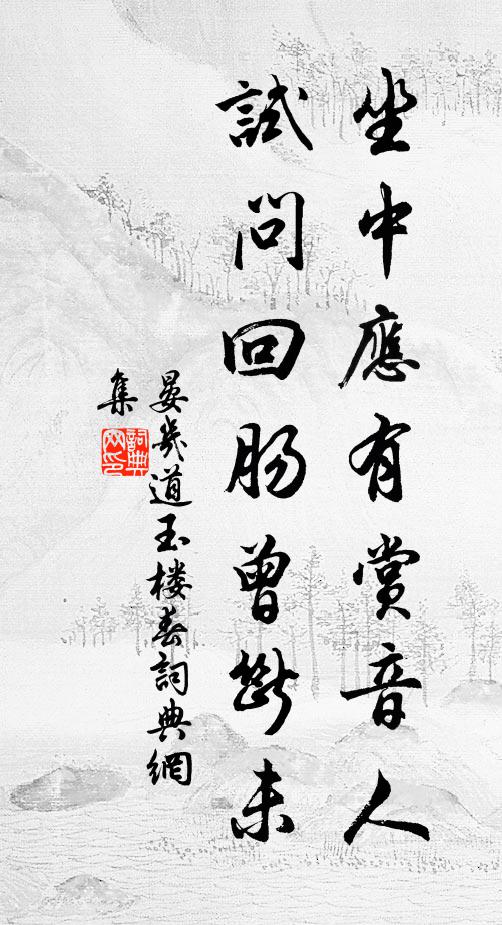 坐中應有賞音人
試問回腸曾斷未
晏幾道玉樓春詞典網
集
詞典
网印